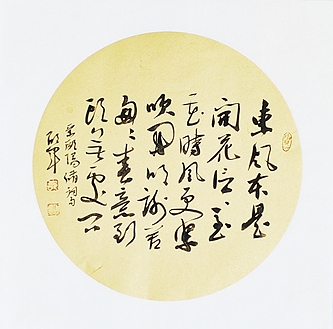 東風本是
開花信〻至
花時風更緊
吹開吹謝苦
匆〻春意到
頭無處問
宋歐陽脩詞句